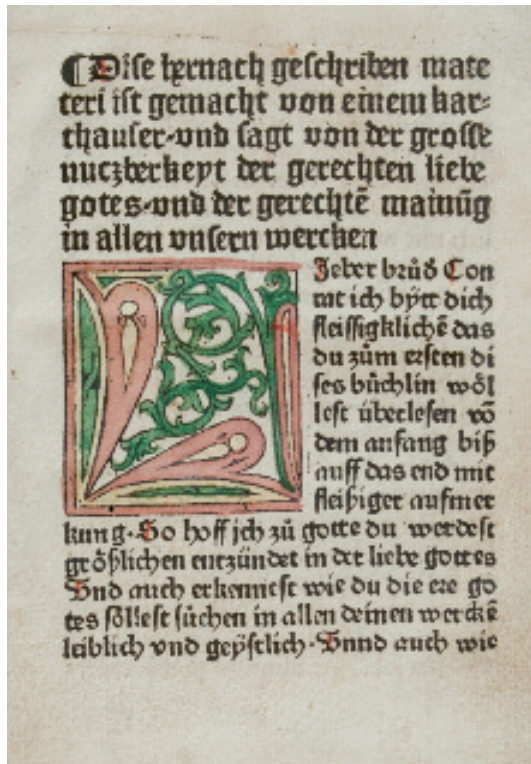 ¶ Dise hernach geschriben mate
teri ist gemacht von einem kar-
thauser·vnd sagt von der grosse
nuczberkeyt der gerechten liebe
gotes·vnd der gerechtē mainūg
in allen vnsern wercken
LIeber brůd Con
rat ich bytt dich
fleissigklichē das
du zům ersten di
ses bůchlin wöl
lest überlesen vō
dem anfang biß
auff das end mit
fleißiger aufmer
kung·So hoff jch zů gotte du werdest
größlichen entzündet in der liebe gottes
Vnd auch erkennest wie du die ere go
tes söllest sůchen in allen deinen werckē
leiblich vnd geÿstlich·Vnnd auch wie